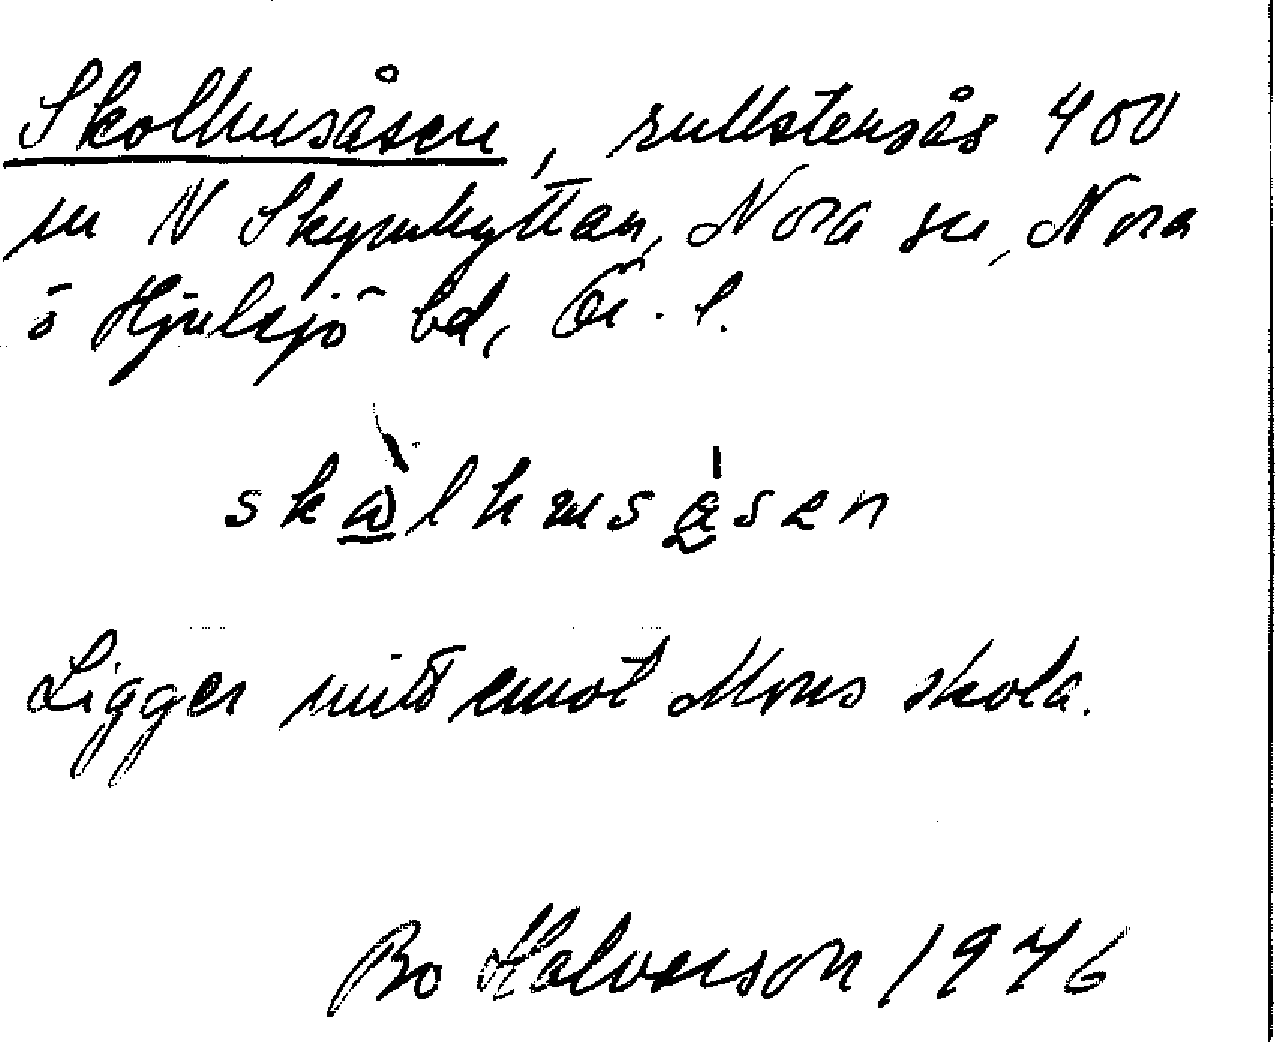 Skolhusåsen, rullstensås 400
m N Skymhyttan, Nora sn, Nora
o Hjulsjö bd, Ör. l.
skωlhusåsen
Ligger mitt emot Mons skola.
Bo Halvarson 1976